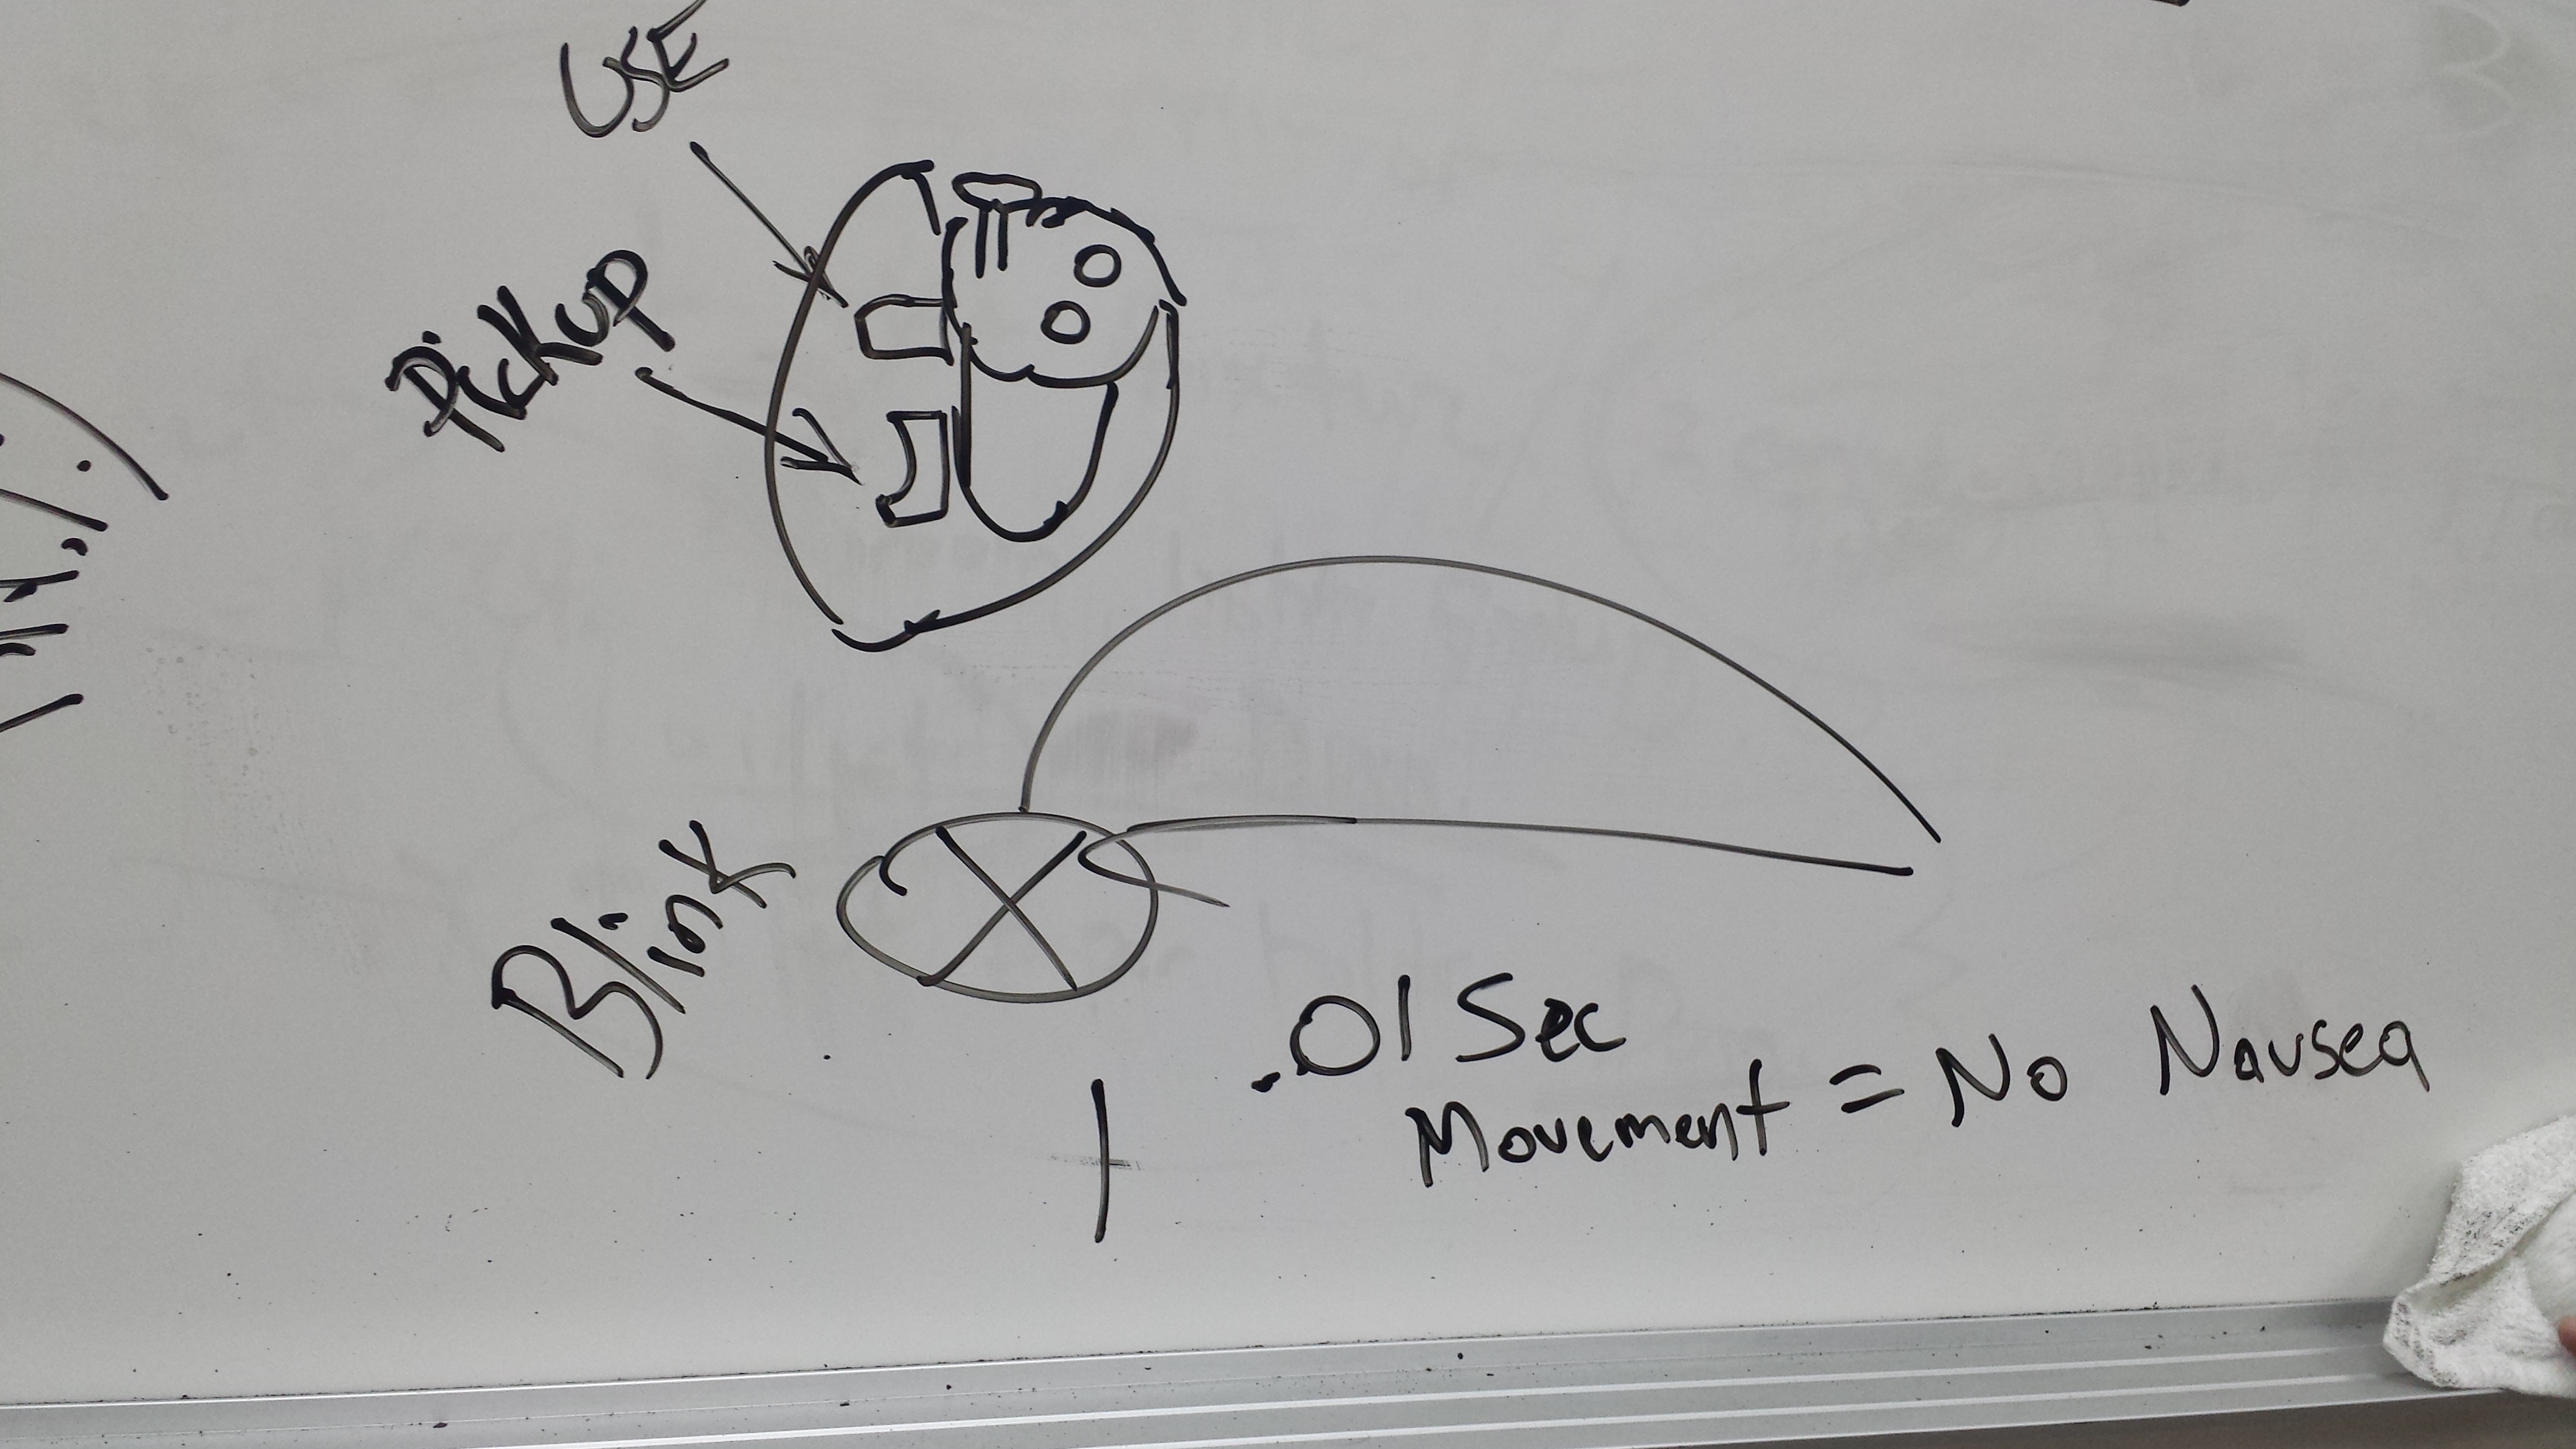 USE
Pickup
Blink
.01 Sec
Movement = No Nausea